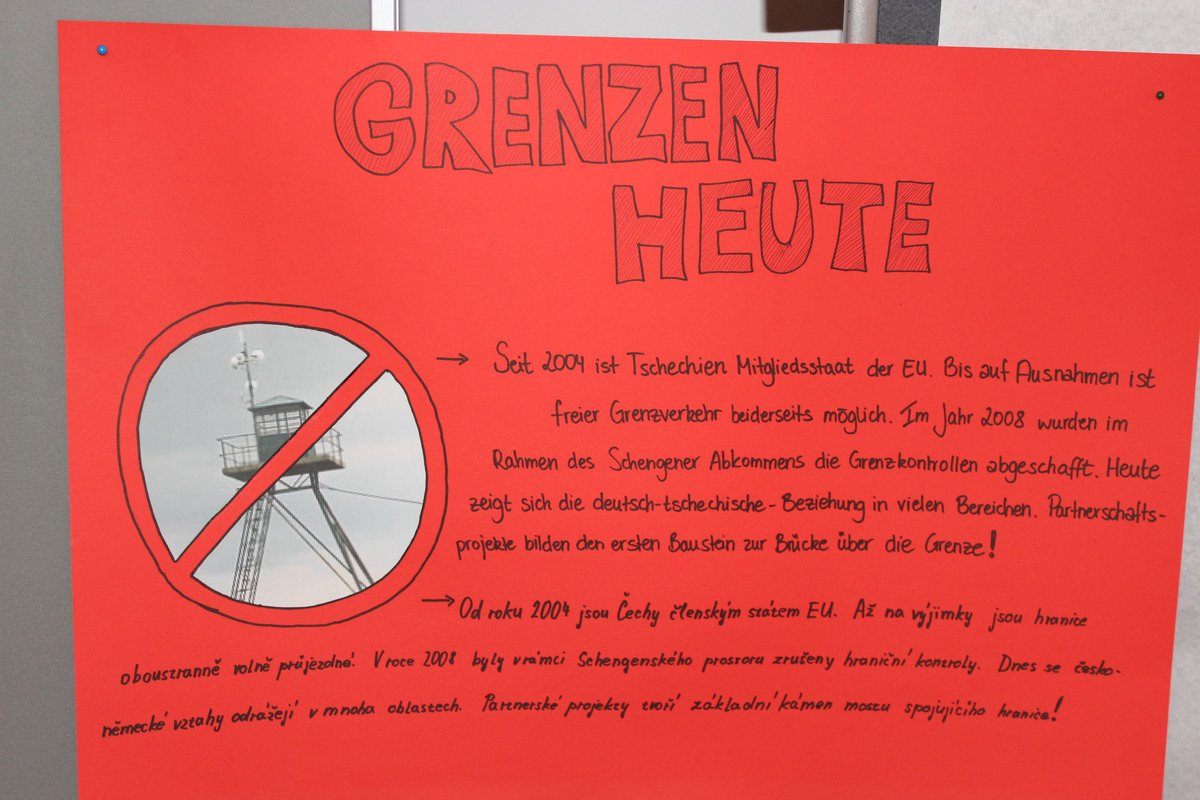 GRENZEN
HEUTE
→ Seit 2004 ist Tschechien Mitgliedsstaat der EU. Bis auf Ausnahmen ist
freier Grenzverkehr beiderseits möglich. Im Jahr 2008 wurden im
Rahmen des Schengener Abkommens die Grenzkontrollen abgeschafft. Heute
zeigt sich die deutsch-tschechische-Beziehung in vielen Bereichen. Partnerschafts-
projekte bilden den ersten Baustein zur Brücke über die Grenze!
→ Od roku 2004 jsou Čechy členským státem EU. Až na výjimky jsou hranice
oboustranně volně průjezdné. V roce 2008 byly v rámci Schengenského prostoru zrušeny hraniční kontroly. Dnes se česko-
německé vztahy odrážejí v mnoha oblastech. Partnerské projekty tvoří základní kámen mostu spojujícího hranice!